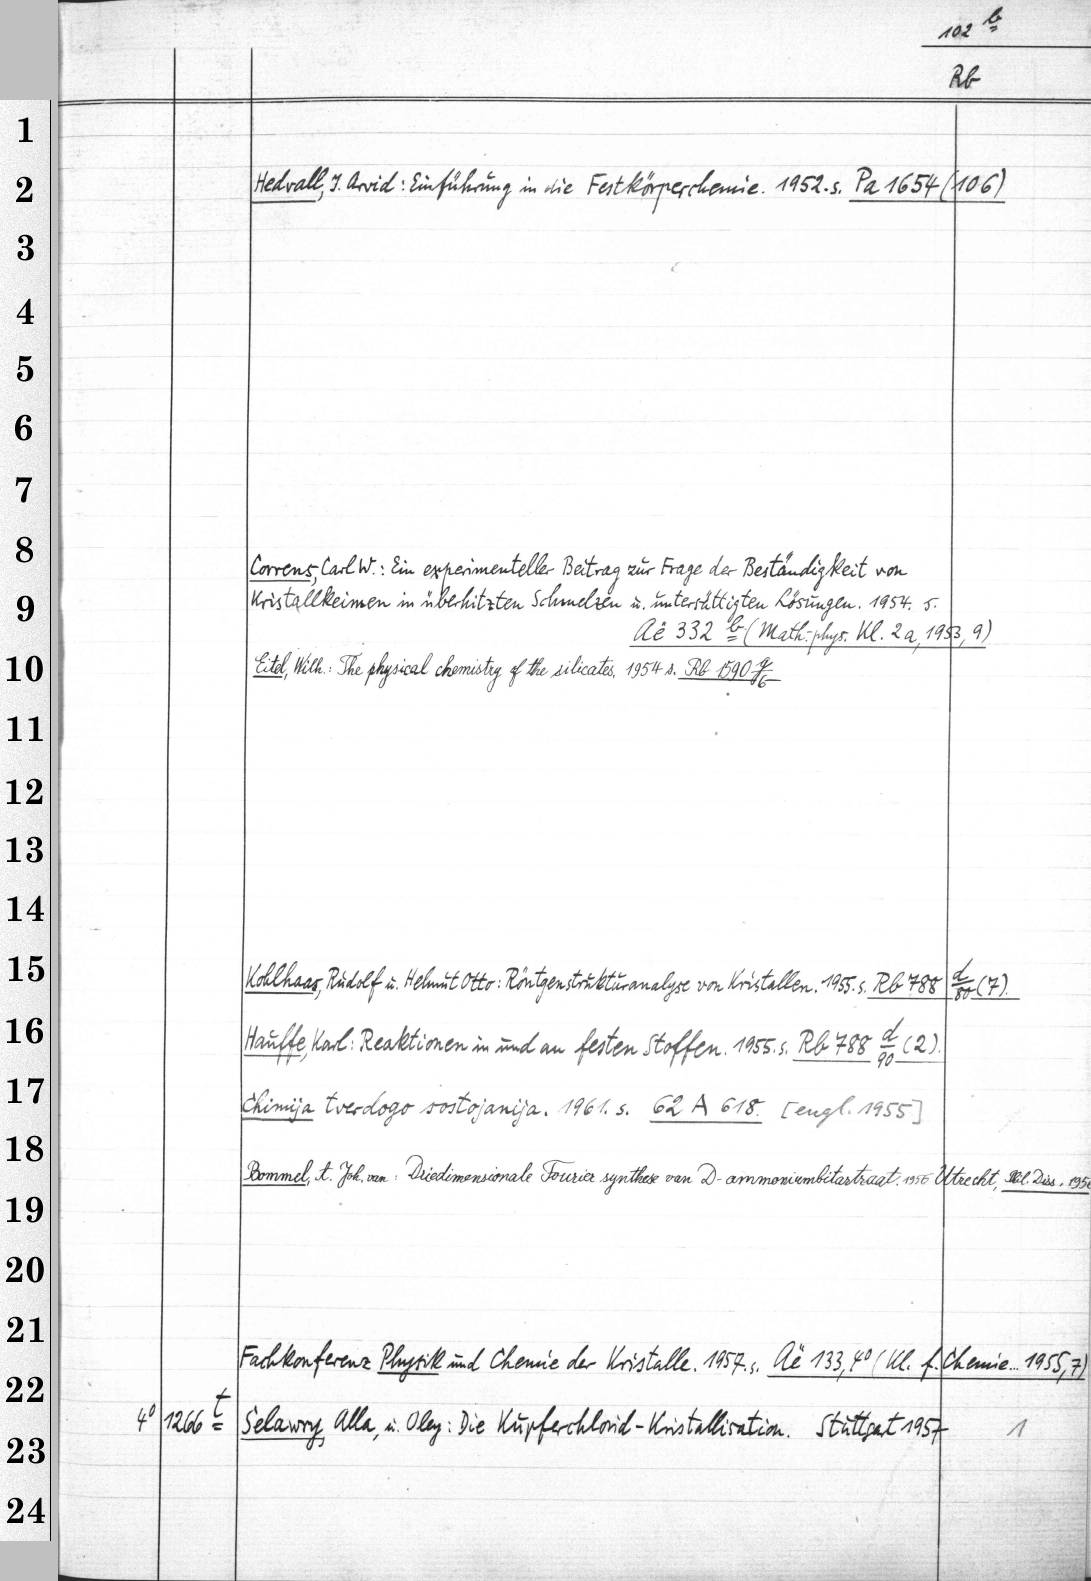 102 b
Rb
1
2 Hedvall, J. Arvid: Einführung in die Festkörperchemie. 1952. s. Pa 1654 (106)
3
4
5
6
7
8 Correns, Carl W.: Ein experimenteller Beitrag zur Frage der Beständigkeit von
9 Kristallkeimen in überhitzten Schmelzen u. untersättigten Lösungen. 1954. s.
Aë 332 b (Math.-phys. Kl. 2a, 1953, 9)
10 Eitel, Wilh.: The physical chemistry of the silicates. 1954 s. Rb 1590 g/6
11
12
13
14
15 Kohlhaas, Rudolf u. Helmut Otto: Röntgenstrukturanalyse von Kristallen. 1955. s. Rb 788 d/80 (7).
16 Hauffe, Karl: Reaktionen in und an festen Stoffen. 1955. s. Rb 788 d/90 (2).
17 Chimija tverdogo sostojanija. 1961. s. 62 A 618. [engl. 1955]
18 Bommel, A. Joh. van: Driedimensionale Fourier synthese van D-ammoniumbitartraat. 1956 Utrecht, Diss. 195
19
20
21
22 Fachkonferenz Physik und Chemie der Kristalle. 1957. s. Aë 133, 4° (Kl. f. Chemie... 1955, 7)
4° 1266 t Selawry, Alla, u. Oleg: Die Kupferchlorid-Kristallisation. Stuttgart 1957 1
23
24